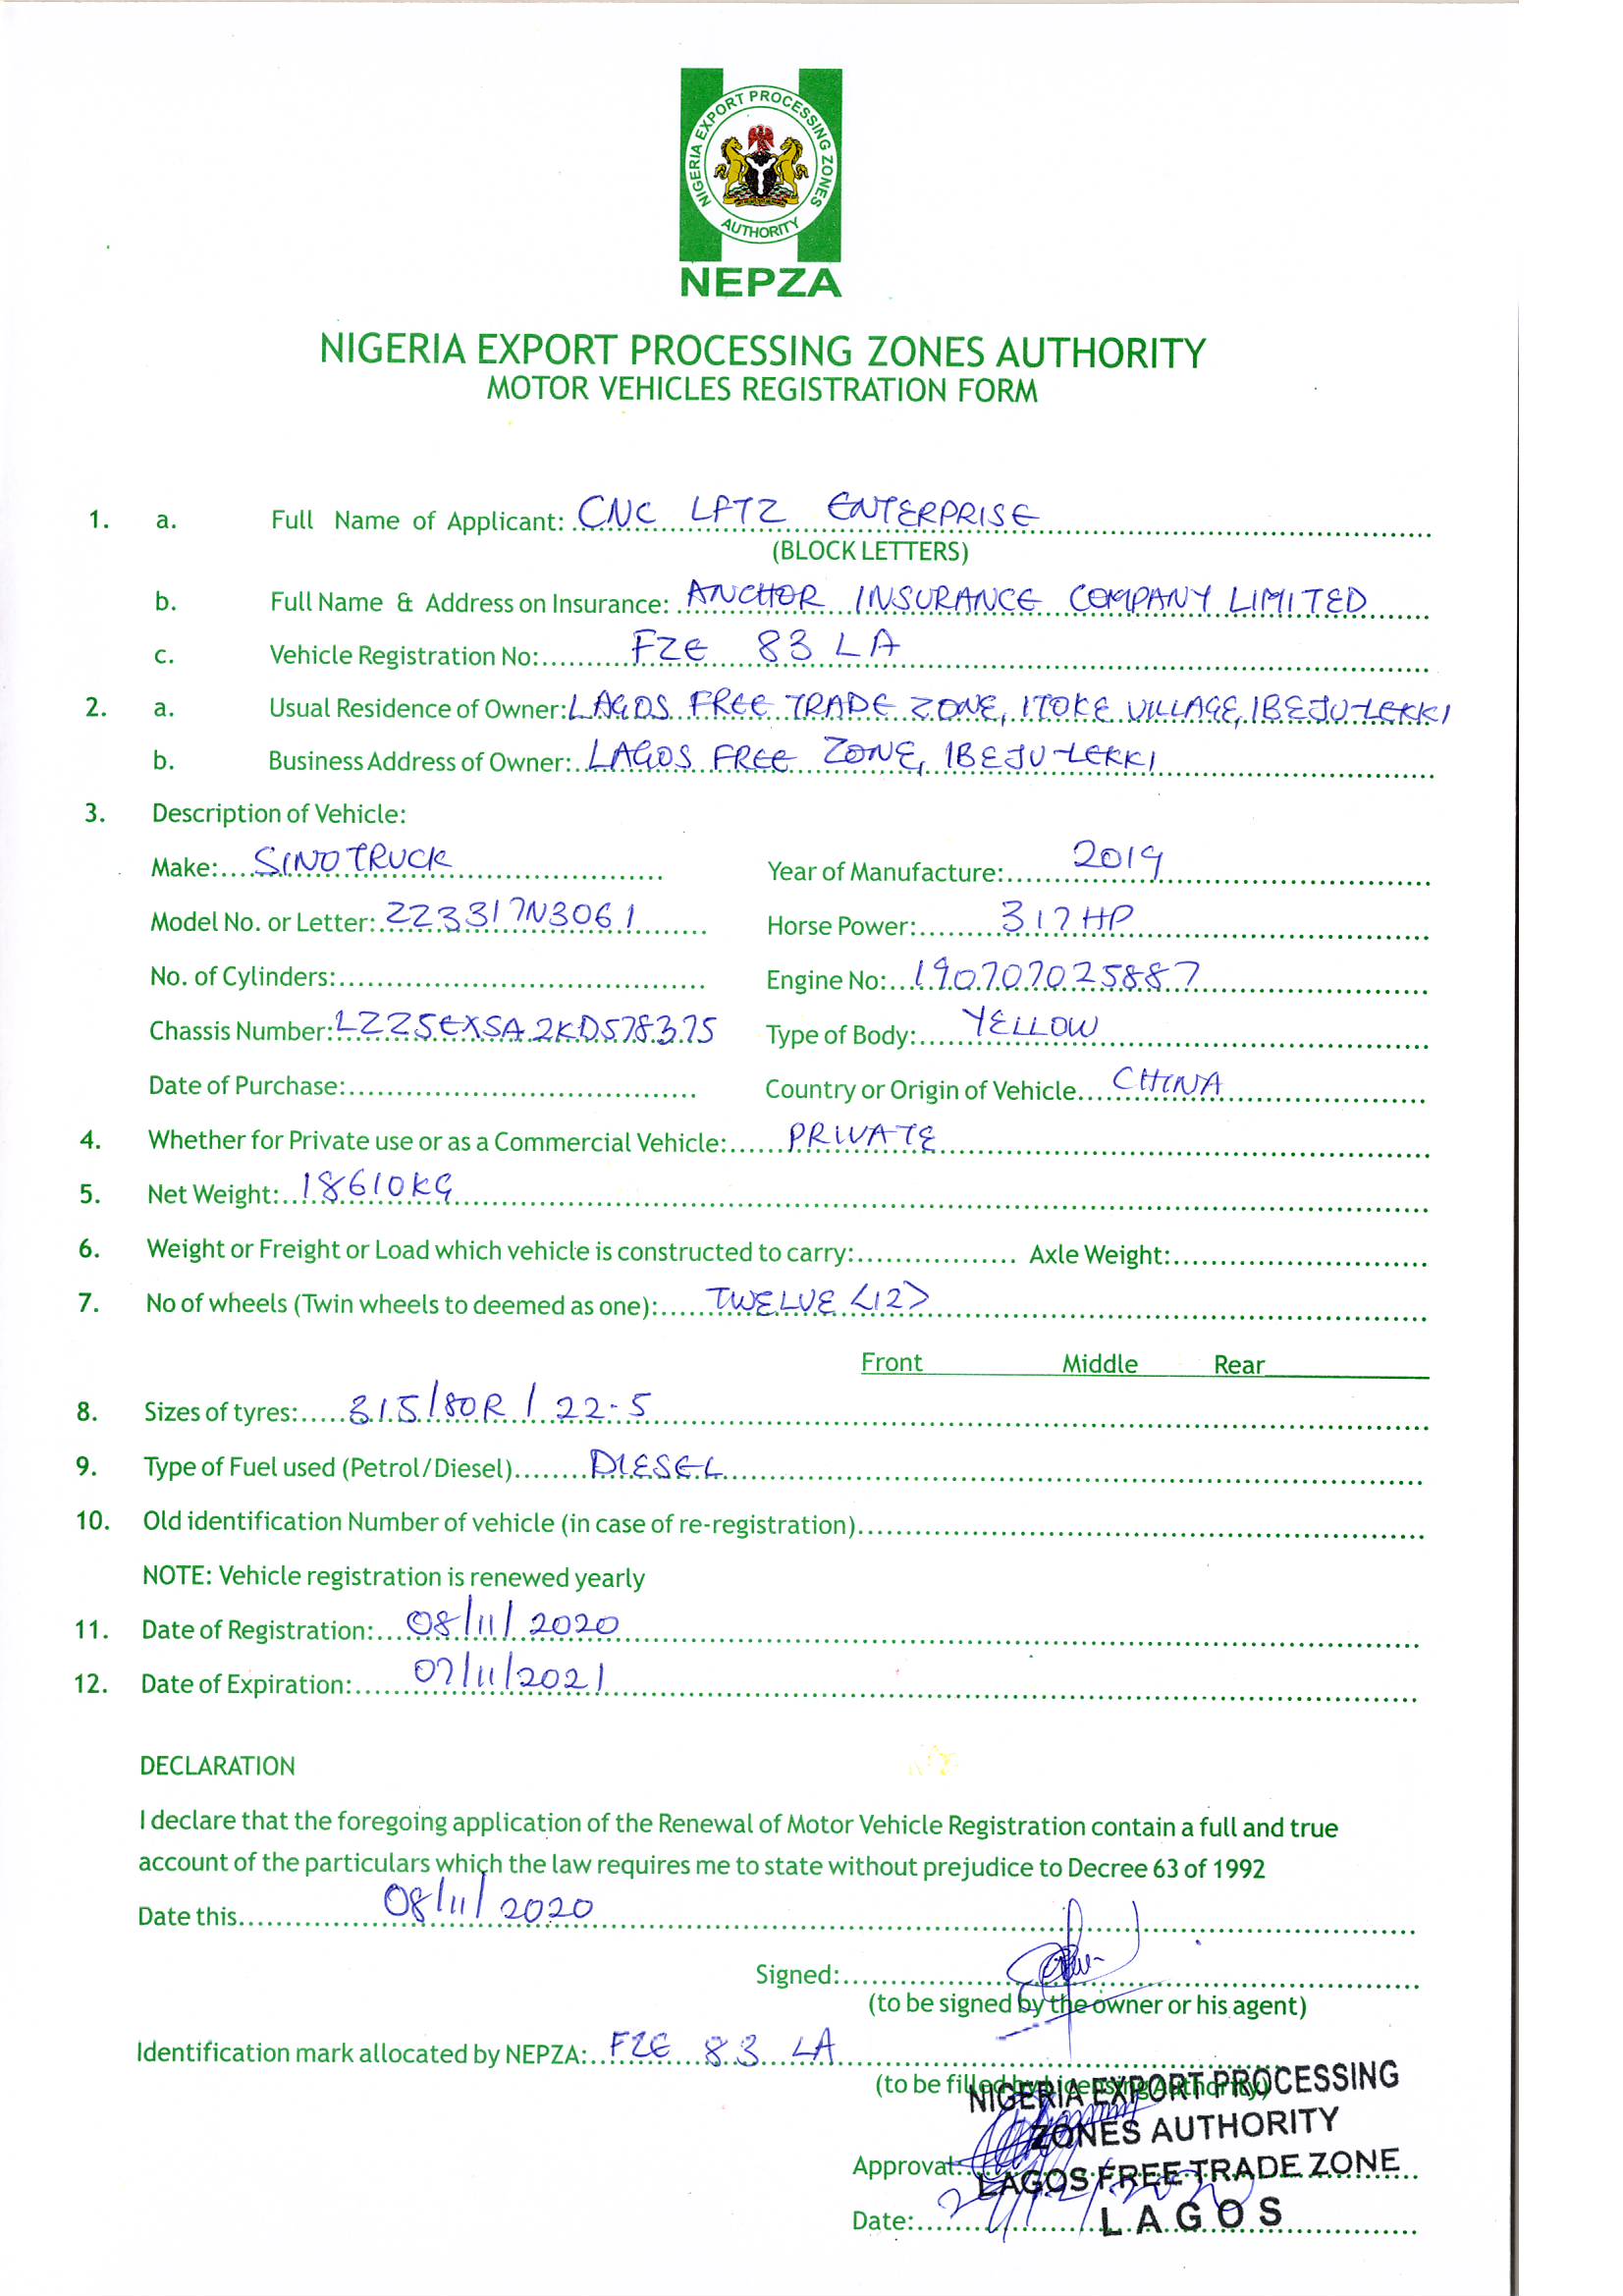 NIGERIA EXPORT PROCESSING ZONES
AUTHORITY
NEPZA
NIGERIA EXPORT PROCESSING ZONES AUTHORITY
MOTOR VEHICLES REGISTRATION FORM
1. a. Full Name of Applicant: CNC LFTZ ENTERPRISE
(BLOCK LETTERS)
b. Full Name & Address on Insurance: ANCHOR INSURANCE COMPANY LIMITED
c. Vehicle Registration No: FZE 83 LA
2. a. Usual Residence of Owner: LAGOS FREE TRADE ZONE, ITOKE VILLAGE, IBEJU-LEKKI
b. Business Address of Owner: LAGOS FREE ZONE, IBEJU-LEKKI
3. Description of Vehicle:
Make: SINOTRUCK Year of Manufacture: 2019
Model No. or Letter: ZZ3317N3061 Horse Power: 317HP
No. of Cylinders: Engine No: 190707025887
Chassis Number: LZZ5EXSA2KD578375 Type of Body: YELLOW
Date of Purchase: Country or Origin of Vehicle CHINA
4. Whether for Private use or as a Commercial Vehicle: PRIVATE
5. Net Weight: 18610KG
6. Weight or Freight or Load which vehicle is constructed to carry: Axle Weight:
7. No of wheels (Twin wheels to deemed as one): TWELVE <12>
Front Middle Rear
8. Sizes of tyres: 315/80R/22.5
9. Type of Fuel used (Petrol/Diesel) DIESEL
10. Old identification Number of vehicle (in case of re-registration)
NOTE: Vehicle registration is renewed yearly
11. Date of Registration: 08/11/2020
12. Date of Expiration: 07/11/2021
DECLARATION
I declare that the foregoing application of the Renewal of Motor Vehicle Registration contain a full and true
account of the particulars which the law requires me to state without prejudice to Decree 63 of 1992
Date this 08/11/2020
Signed:
(to be signed by the owner or his agent)
Identification mark allocated by NEPZA: FZE 83 LA
(to be filled by Licensing Authority)
NIGERIA EXPORT PROCESSING
ZONES AUTHORITY
Approval:
LAGOS FREE TRADE ZONE
Date:
LAGOS